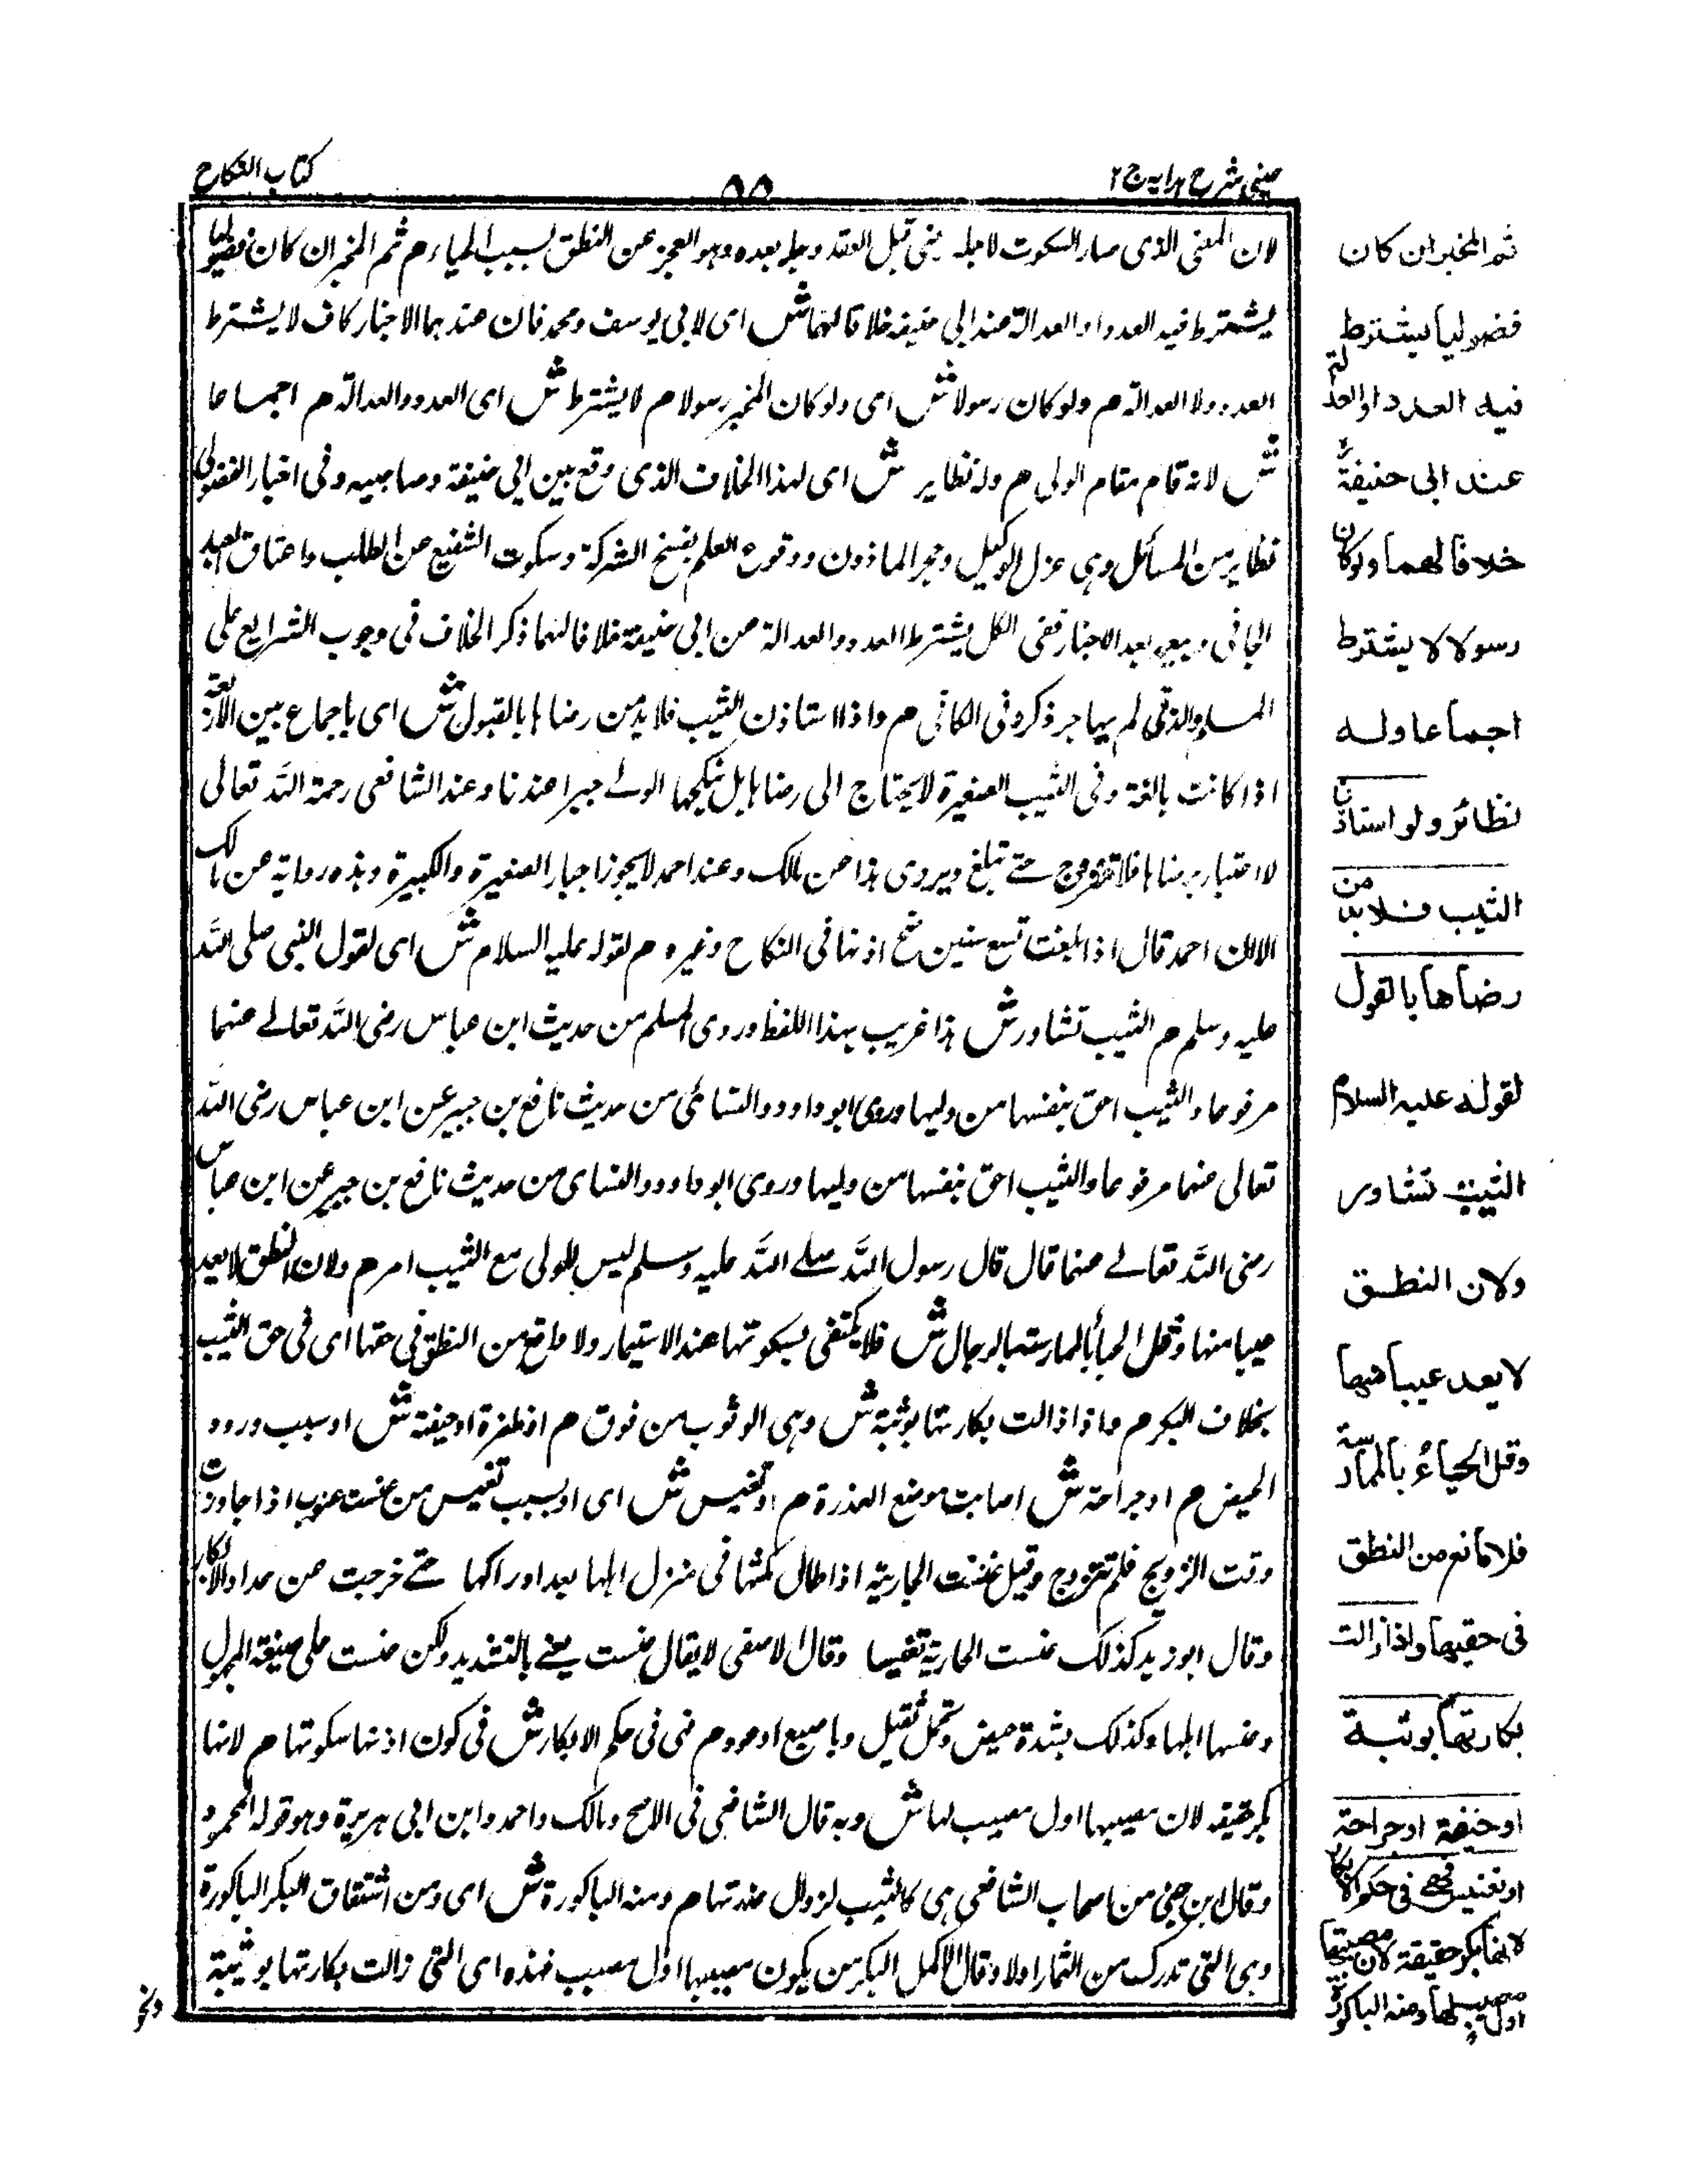 عینی شرح ہدایہ ج ۲
۵۵
کتاب النکاح
لان المعنی الذی صار السکوت لاجلہ یعنی قبل العقد وجد بعدہ وہو العجز عن النطق بسبب الحیاء م ثم المخبر ان کان فضولیا
یشترط فیہ العدد او العدالۃ عند ابی حنیفہ خلافا لہما ش ای لابی یوسف ومحمد فان عندہما الاخبار کاف لا یشترط
العدد ولا العدالۃ م ولو کان رسولا ش ای ولو کان المخبر رسولا م لا یشترط ش ای العدد والعدالۃ م اجماعا
ش لانہ قام مقام الولی م ولہ نظایر ش ای لہذا الخلاف الذی وقع بین ابی حنیفۃ وصاحبیہ وفی اخبار الفضولی
نظایر من المسائل وہی عزل الوکیل وحجر الماذون ووقوع العلم بفسخ الشرکۃ وسکوت الشفیع عن الطلب واعتاق العبد
الجانی وبیعہ بعد الاخبار ففی الکل یشترط العدد والعدالۃ عن ابی حنیفۃ خلافا لہما ذکر الخلاف فی وجوب الشرایع علی
المسلم الذی لم یہاجر ذکرہ فی الکافی م واذا استاذن الثیب فلا بد من رضاہا بالقبول ش ای باجماع بین الاربعۃ
اذا کانت بالغۃ وفی الثیب الصغیرۃ لا یحتاج الی رضاہا بل ینکحہا الولے جبرا عندنا وعند الشافعی رحمۃ اللہ تعالی
لا اعتبار برضاہا فلا تتزوج حتے تبلغ ویروی ہذا عن مالک وعند احمد لا یجوز اجبار الصغیرۃ والکبیرۃ وہذہ روایۃ عن مالک
الا ان احمد قال اذا بلغت تسع سنین صح اذنہا فی النکاح وغیرہ م لقولہ علیہ السلام ش ای لقول النبی صلی اللہ
علیہ وسلم م الثیب تشاور ش ہذا غریب بہذا اللفظ وروی المسلم من حدیث ابن عباس رضی اللہ تعالے عنہما
مرفوعا والثیب احق بنفسہا من ولیہا وروی ابو داوود والنسائی من حدیث نافع بن جبیر عن ابن عباس رضی اللہ
تعالی عنہما مرفوعا والثیب احق بنفسہا من ولیہا وروی ابو داوود والنسای من حدیث نافع بن جبیر عن ابن عباس
رضی اللہ تعالے عنہما قال قال رسول اللہ صلے اللہ علیہ وسلم لیس للولی مع الثیب امر م ولان النطق لا یعد
عیبا منہا وقل الحیاء بالممارستہ بالرجال ش فلا یکتفی بسکوتہا عند الاستیمار ولا مانع من النطق فی حقہا ای فی حق الثیب
بخلاف البکر م واذا زالت بکارتہا بوثبۃ ش وہی الوثوب من فوق م او طفرۃ او حیضۃ ش او سبب ورود
الحیض م او جراحۃ ش اصابت موضع العذرۃ م او تعنیس ش ای او بسبب تعنیس من عنست عنوسا اذا جاوزت
وقت التزویج فلم تتزوج وقیل عنست الجاریۃ اذا طال مکثہا فی منزل اہلہا بعد ادراکہا حتے خرجت عن عداد الابکار
وقال ابو زید کذلک عنست الجاریۃ تعنیسا وقال الاصمعی لا یقال عنست یعنے بالتشدید ولکن عنست علی صیغۃ المجہول
وعنسہا اہلہا وکذلک بشدۃ حیض وتحمل ثقیل وباصبع او عود م فہی فی حکم الابکار ش فی کون اذنہا سکوتہا م لانہا
بکر حقیقہ لان مصیبہا اول مصیب لہا ش وبہ قال الشافعی فی الاصح ومالک واحمد وابن ابی ہریرۃ وہو قولہ المحمود
وقال ابن من اصحاب الشافعی ہی کالثیب لزوال عذرتہا م ومنہ الباکورۃ ش ای ومن اشتقاق البکر الباکورۃ
وہی التی تدرک من الثمار اولا وقال الاکمل البکر من یکون مصیبہا اول مصیب فہذہ ای التی زالت بکارتہا بوثبۃ
ونحو
ثم المخبر ان کان
فضولیا یشترط
فیہ العدد او العدالۃ
عند ابی حنیفۃ
خلافا لھما ولو کان
رسولا لا یشترط
اجماعا ولہ
نظائر ولو استاذن
الثیب فلا بد من
رضاھا بالقول
لقولہ علیہ السلام
الثیب تشاور
ولان النطق
لا یعد عیبا منھا
وقل الحیاء بالممارسۃ
فلا مانع من النطق
فی حقھا واذا زالت
بکارتھا بوثبۃ
او حیضۃ او جراحۃ
او تعنیس فھی فی حکم الابکار
لانھا بکر حقیقۃ لان مصیبھا
اول مصیب لھا ومنہ الباکورۃ